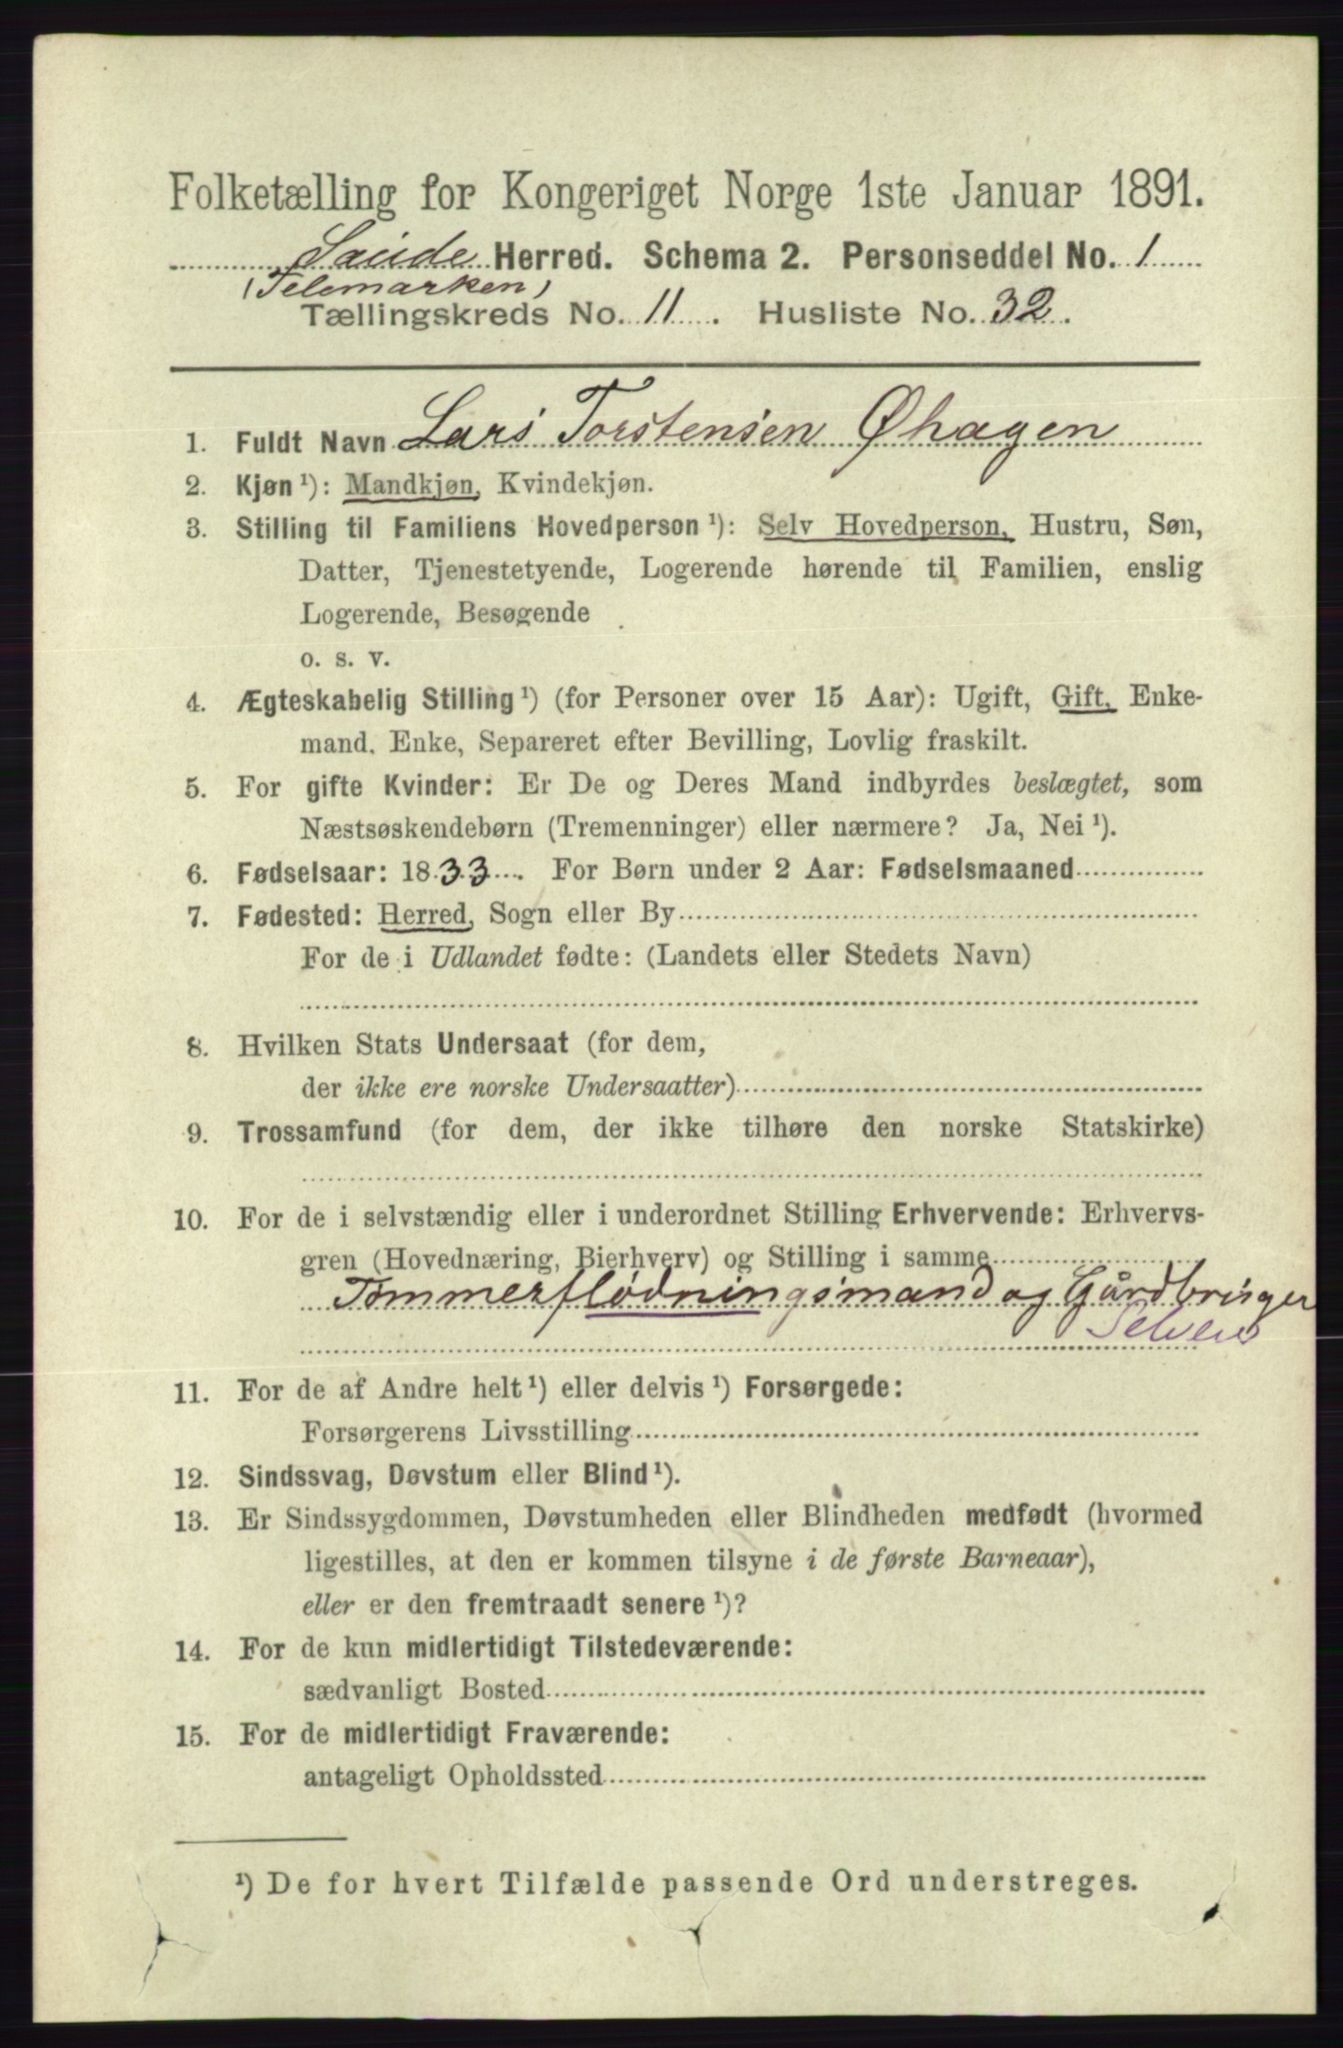 Folketælling for Kongeriget Norge 1ste Januar 1891.
Saude Herred. Schema 2. Personseddel No. 1
(Telemarken)
Tællingskreds No. 11. Husliste No. 32.
1. Fuldt Navn Lars Torstensen Øhagen
2. Kjøn ¹): Mandkjøn, Kvindekjøn.
3. Stilling til Familiens Hovedperson ¹): Selv Hovedperson, Hustru, Søn,
Datter, Tjenestetyende, Logerende hørende til Familien, enslig
Logerende, Besøgende
o. s. v.
4. Ægteskabelig Stilling ¹) (for Personer over 15 Aar): Ugift, Gift, Enke-
mand, Enke, Separeret efter Bevilling, Lovlig fraskilt.
5. For gifte Kvinder: Er De og Deres Mand indbyrdes beslægtet, som
Næstsøskendebørn (Tremenninger) eller nærmere? Ja, Nei ¹).
6. Fødselsaar: 1833. For Børn under 2 Aar: Fødselsmaaned
7. Fødested: Herred, Sogn eller By
For de i Udlandet fødte: (Landets eller Stedets Navn)
8. Hvilken Stats Undersaat (for dem,
der ikke ere norske Undersaatter)
9. Trossamfund (for dem, der ikke tilhøre den norske Statskirke)
10. For de i selvstændig eller i underordnet Stilling Erhvervende: Erhvervs-
gren (Hovednæring, Bierhverv) og Stilling i samme
Tømmerflödningsmand og Gårdbruger
Selveier
11. For de af Andre helt ¹) eller delvis ¹) Forsørgede:
Forsørgerens Livsstilling
12. Sindssvag, Døvstum eller Blind ¹).
13. Er Sindssygdommen, Døvstumheden eller Blindheden medfødt (hvormed
ligestilles, at den er kommen tilsyne i de første Barneaar),
eller er den fremtraadt senere ¹)?
14. For de kun midlertidigt Tilstedeværende:
sædvanligt Bosted
15. For de midlertidigt Fraværende:
antageligt Opholdssted
¹) De for hvert Tilfælde passende Ord understreges.